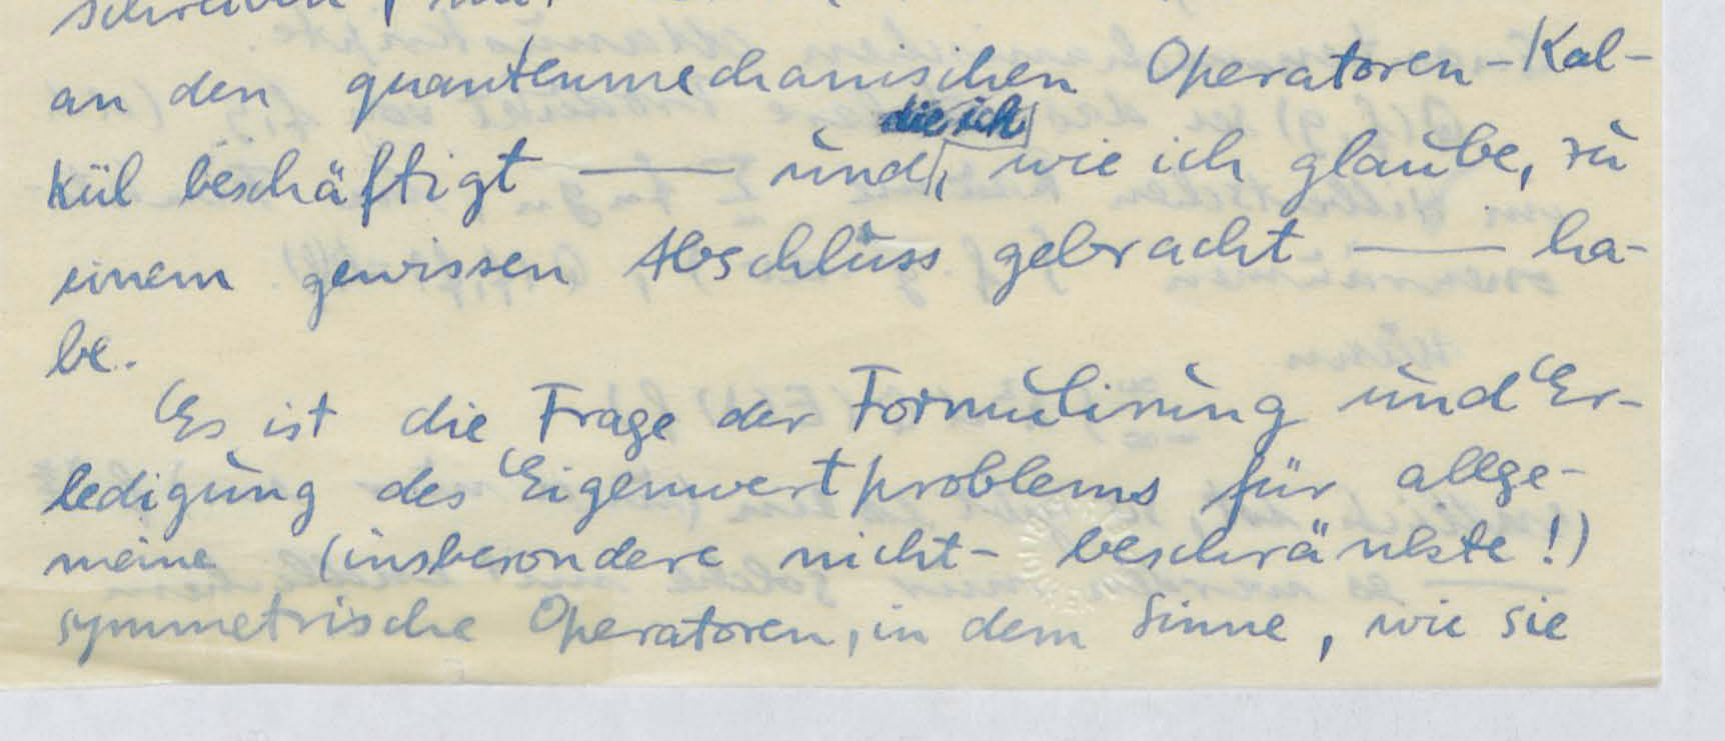 an den quantenmechanischen Operatoren-Kal-
die ich
kül beschäftigt — und, wie ich glaube, zu
einem gewissen Abschluss gebracht — ha-
be.
Es ist die Frage der Formulirung und Er-
ledigung des Eigenwertproblems für allge-
meine (insbesondere nicht- beschränkte!)
symmetrische Operatoren, in dem Sinne, wie sie